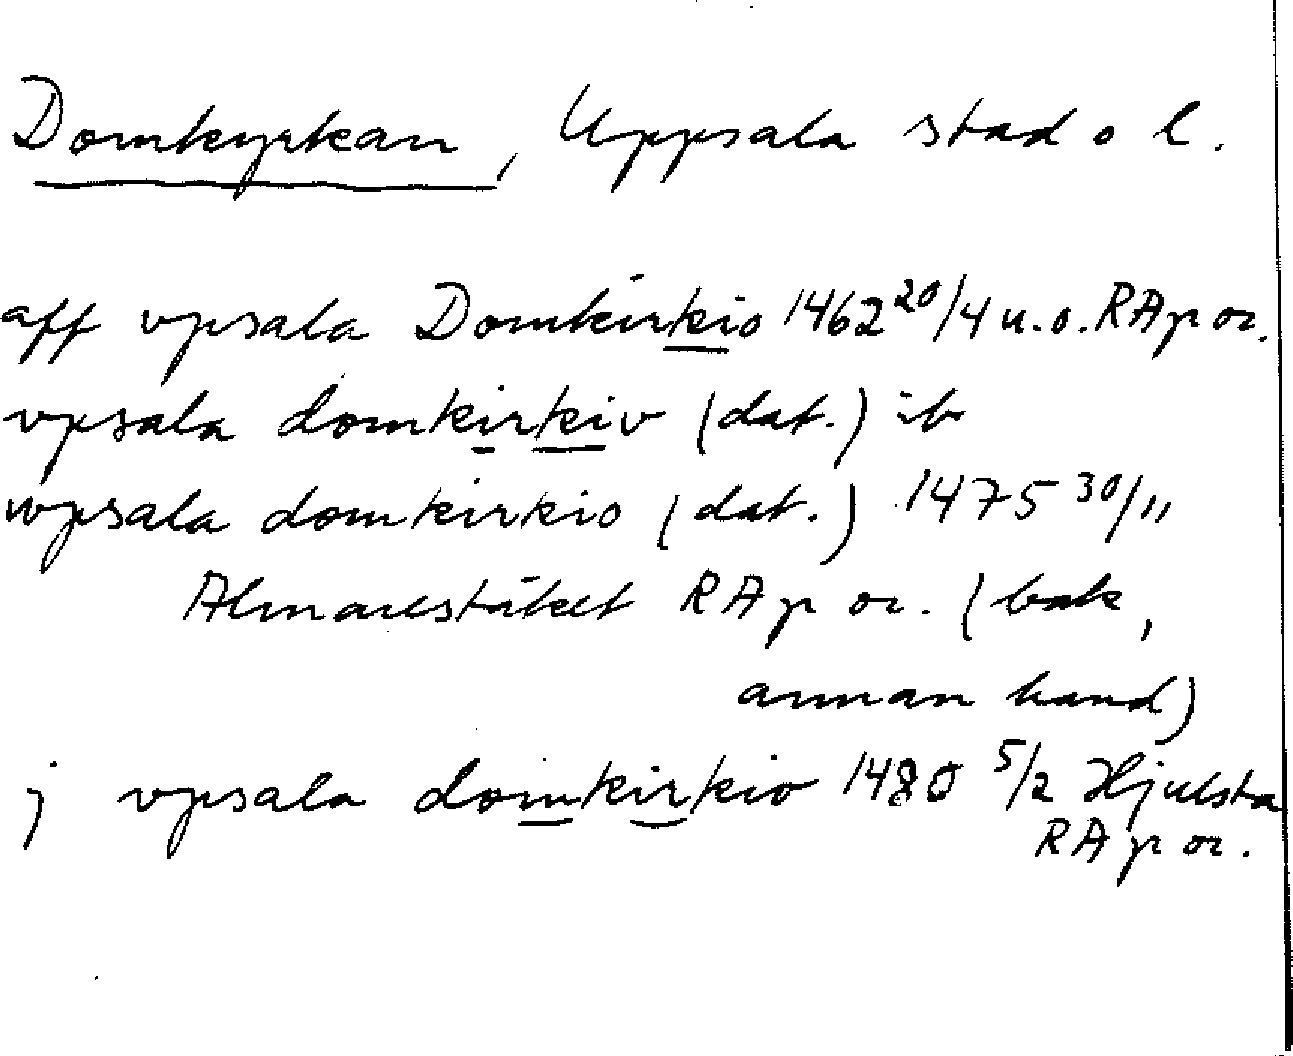 Domkyrkan, Uppsala stad o l.
aff vpsala Domkirkio 1462 20/4 u.o. RAp or.
vpsala domkirkiv (dat.) ib
wpsala domkirkio (dat.) 1475 30/11
Almarestäket RAp or. (bak,
annan hand)
j vpsala domkirkio 1480 5/2 Hjulsta
RAp or.